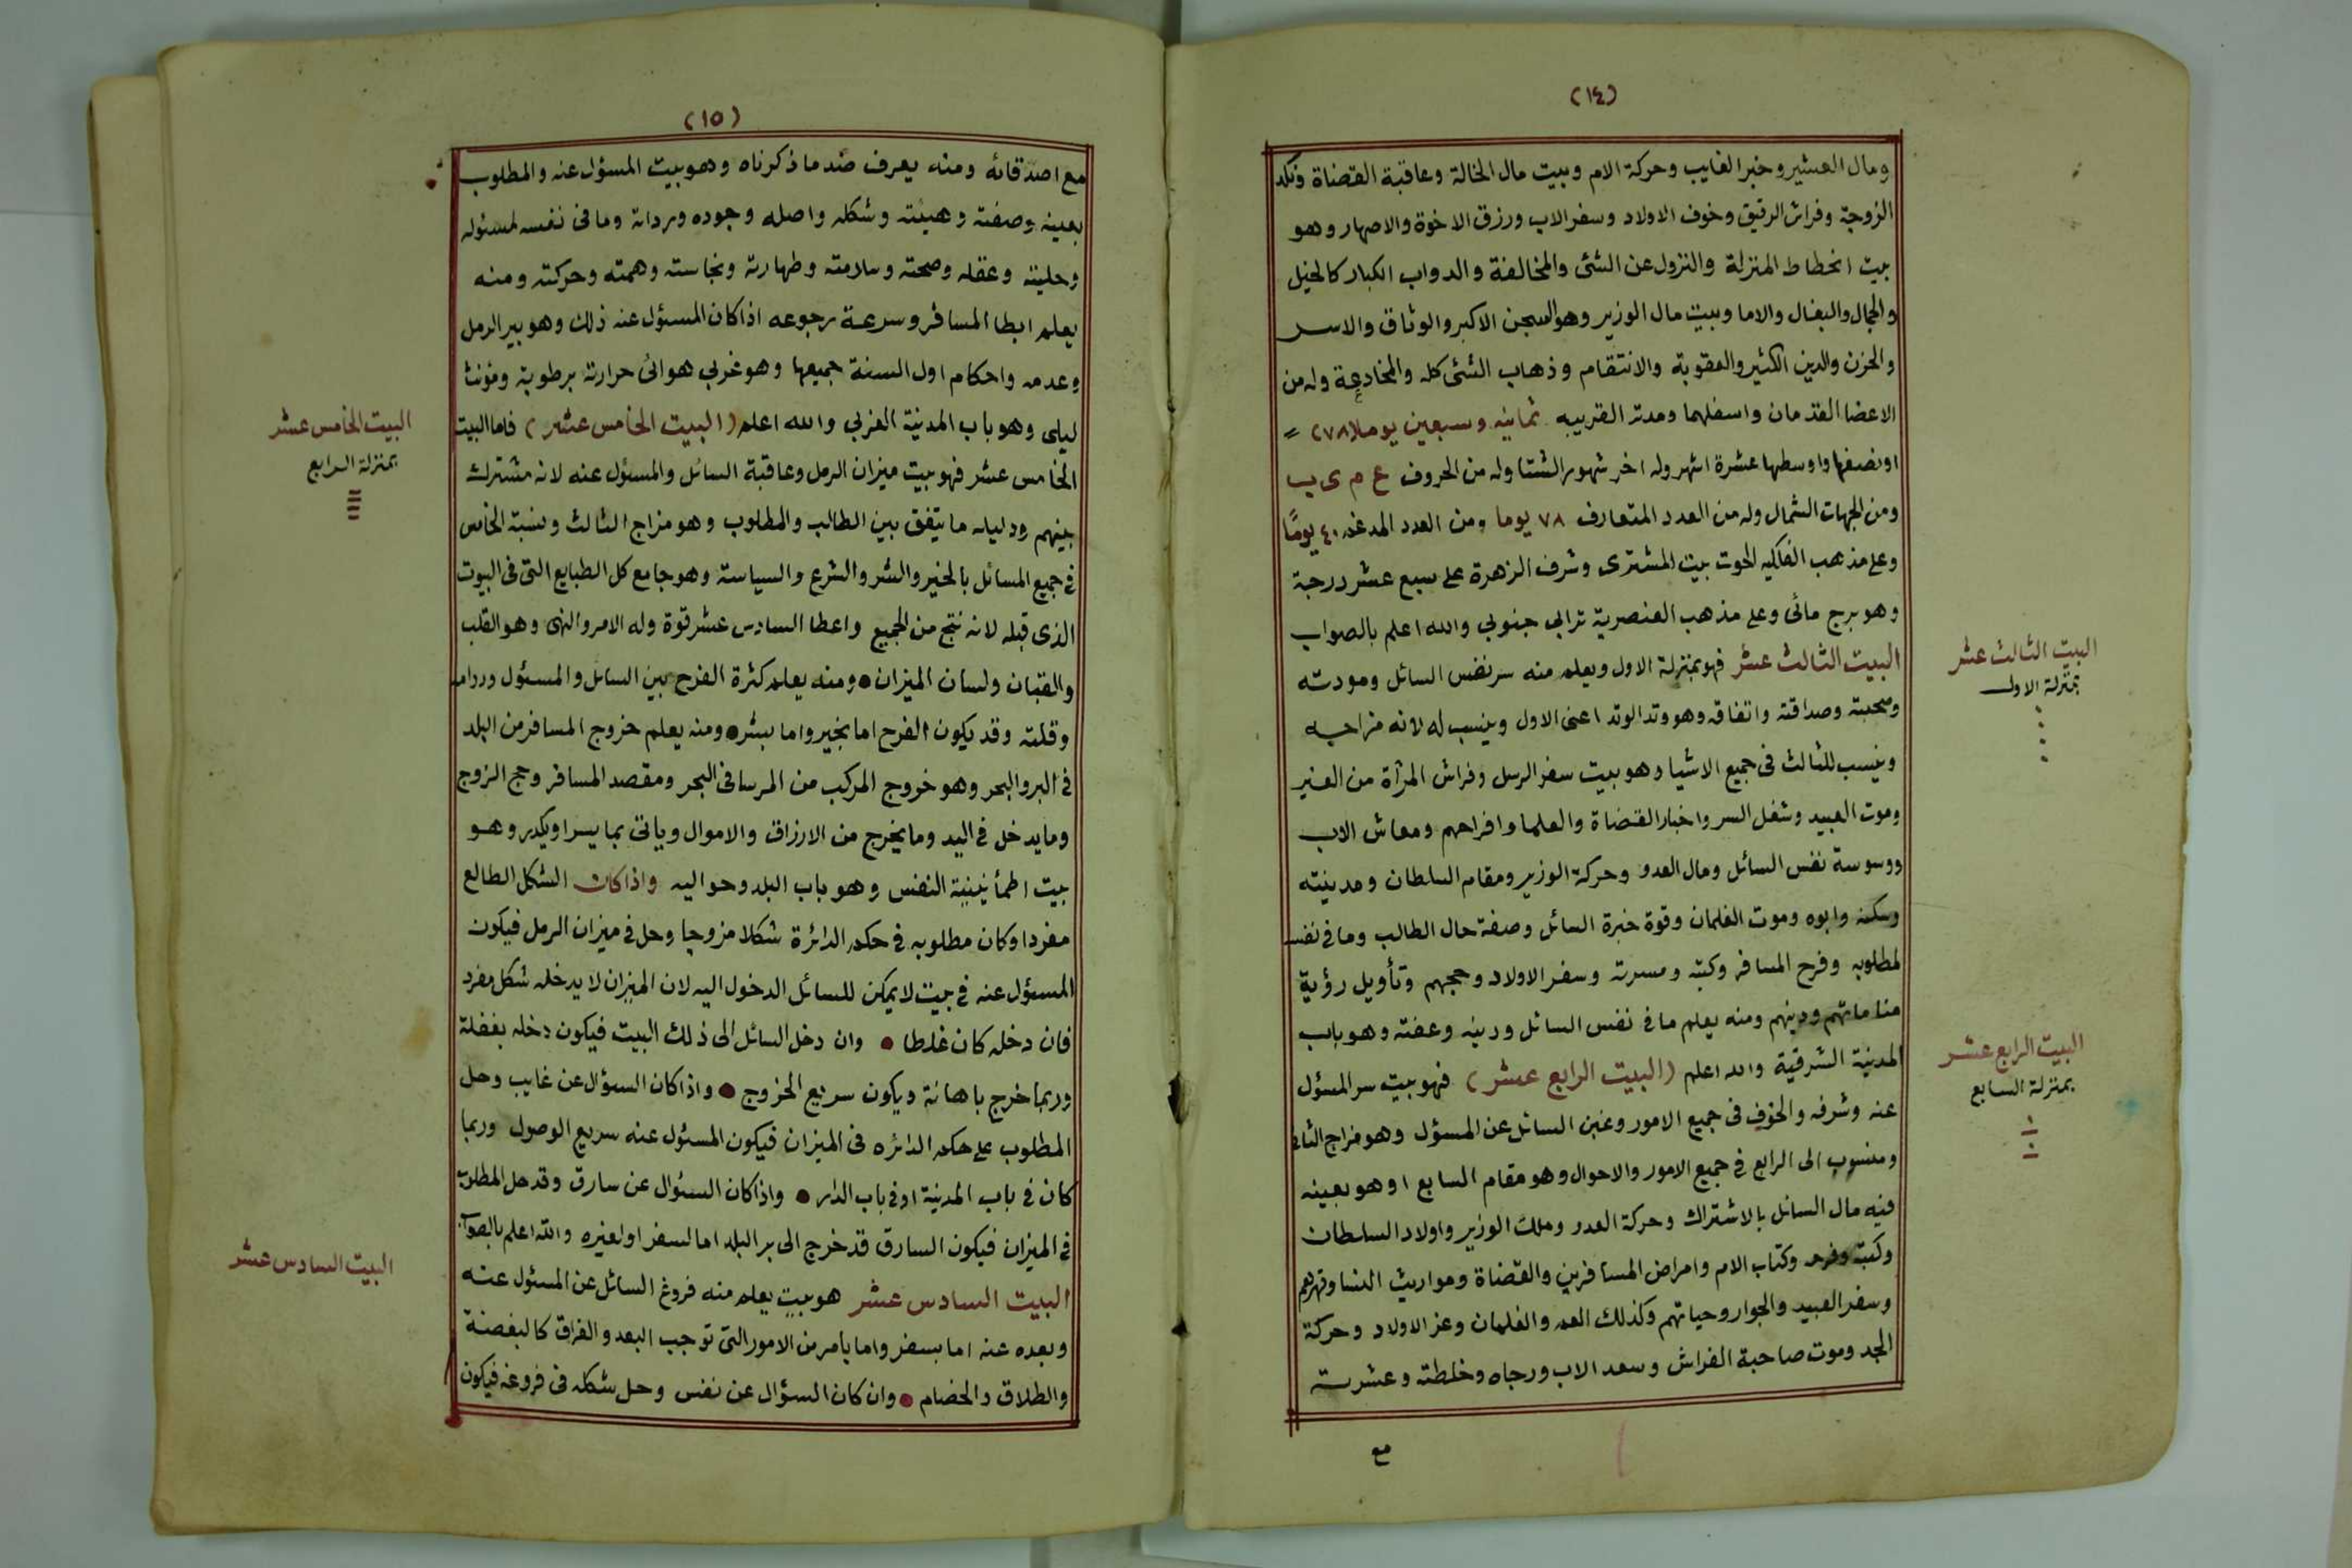 (١٤)
ومال العشير وخبر الغايب وحركة الام وبيت مال الخالة وعاقبة القضاة ونكد
الزوجة وفراش الرقيق وخوف الاولاد وسفر الاب ورزق الاخوة والاصهار وهو
بيت انحطاط المنزلة والنزول عن الشئ والمخالفة والدواب الكبار كالخيل
والجمال والبغال والاما وبيت مال الوزير وهو السجن الاكبر والوثاق والاسر
والحزن والدين الكثير والعقوبة والانتقام وذهاب الشئ كله والمخادعة وله من
الاعضا القدمان واسفلهما ومدته القريبه ثمانيه وسبعين يوما (٧٨)
او نصفها واوسطها عشرة اشهر وله اخر شهور الشتا وله من الحروف ع م ى ب
ومن الجهات الشمال وله من العدد المتعارف ٧٨ يوما ومن العدد المدغم ٤٠ يومًا
وعلى مذهب الفلكيه الحوت بيت المشترى وشرف الزهرة على سبع عشر درجة
وهو برج مائى وعلى مذهب العنصرية ترابي جنوبي والله اعلم بالصواب
البيت الثالث عشر فهو بمنزلة الاول ويعلم منه سر نفس السائل ومودته
وصحبته وصداقته واتفاقه وهو وتد الوتد اعنى الاول وينسب له لانه مزاجه
وينسب للثالث فى جميع الاشيا وهو بيت سفر الرسل وفراش المرأة من الغير
وموت العبيد وشغل السر واخبار القضاة والعلما وافراحهم ومعاش الاب
ووسوسة نفس السائل ومال العدو وحركة الوزير ومقام السلطان ومدينته
وسكنه وابوه وموت الغلمان وقوة خبرة السائل وصفة حال الطالب وما في نفسه
لمطلوبه وفرح المسافر وكتبه ومسرته وسفر الاولاد وحجهم وتأويل رؤية
مناماتهم ودينهم ومنه يعلم ما فى نفس السائل ودينه وعفته وهو باب
المدنية الشرقية والله اعلم (البيت الرابع عشر) فهو بيت سر المسؤل
عنه وشرفه والخوف فى جميع الامور وغبن السائل عن المسؤل وهو مزاج الثانى
ومنسوب الى الرابع في جميع الامور والاحوال وهو مقام السابع او هو بعينه
فيه مال السائل بالاشتراك وحركة العدو وملك الوزير واولاد السلطان
وكتبه وفرحه وكتاب الام وامراض المسافرين والقضاة ومواريث النسا وقهرهم
وسفر العبيد والجوار وحياتهم وكذلك العم والغلمان وعز الاولاد وحركة
الجد وموت صاحبة الفراش وسعد الاب ورجاه وخلطته وعشرته
مع
البيت الثالث عشر
بمنزلة الاول
البيت الرابع عشر
بمنزلة السابع
(١٥)
مع اصدقائه ومنه يعرف ضد ما ذكرناه وهو بيت المسؤل عنه والمطلوب
بعينه وصفته وهيئته وشكله واصله وجوده ورداته وما فى نفسه لمسئوله
وحليته وعقله وصحته وسلامته وطهارته ونجاسته وهمته وحركته ومنه
يعلم ابطا المسافر وسرعة رجوعه اذا كان المسؤل عنه ذلك وهو بير الرمل
وعدمه واحكام اول السنة جميعها وهو غربي هوائى حرارته برطوبة ومؤنث
ليلى وهو باب المدنية الغربي والله اعلم (البيت الخامس عشر) فاما البيت
الخامس عشر فهو بيت ميزان الرمل وعاقبة السائل والمسؤل عنه لانه مشترك
بينهم ودليله ما يتفق بين الطالب والمطلوب وهو مزاج الثالث ونسبة الخامس
في جميع المسائل بالخير والشر والشرع والسياسة وهو جامع كل الطبايع التى فى البيوت
الذى قبله لانه نتج من الجميع واعطا السادس عشر قوة وله الامر والنهى وهو القلب
والقبان ولسان الميزان ● ومنه يعلم كثرة الفرح بين السائل والمسئول ودوامه
وقلته وقد يكون الفرح اما بخير واما بشر ● ومنه يعلم خروج المسافر من البلد
في البر والبحر وهو خروج المركب من المرسا في البحر ومقصد المسافر وحج الزوج
وما يدخل في اليد وما يخرج من الارزاق والاموال وياتى بما يسر او يكدر وهو
بيت اطمأنينية النفس وهو باب البلد وحواليه واذا كان الشكل الطالع
مفردا وكان مطلوبه في حكم الدائرة شكلا مزوجا وحل في ميزان الرمل فيكون
المسئول عنه في بيت لا يمكن للسائل الدخول اليه لان الميزان لا يدخله شكل مفرد
فان دخله كان غلطا ● وان دخل السائل الى ذلك البيت فيكون دخله بغفلة
وربما خرج باهانة ويكون سريع الخروج ● واذا كان السؤال عن غايب وحل
المطلوب على حكم الدائره فى الميزان فيكون المسئول عنه سريع الوصول وربما
كان في باب المدنية او في باب الدار ● واذا كان السئوال عن سارق وقد حل المطلوب
في الميزان فيكون السارق قد خرج الى بر البلد اما لسفر او لغيره والله اعلم بالصواب
البيت السادس عشر هو بيت يعلم منه فروغ السائل عن المسئول عنه
وبعده عنه اما بسفر واما بامر من الامور التى توجب البعد والفراق كالبغضة
والطلاق والخصام ● وان كان السؤال عن نفس وحل شكله فى فروغه فيكون
البيت الخامس عشر
بمنزلة الرابع
البيت السادس عشر